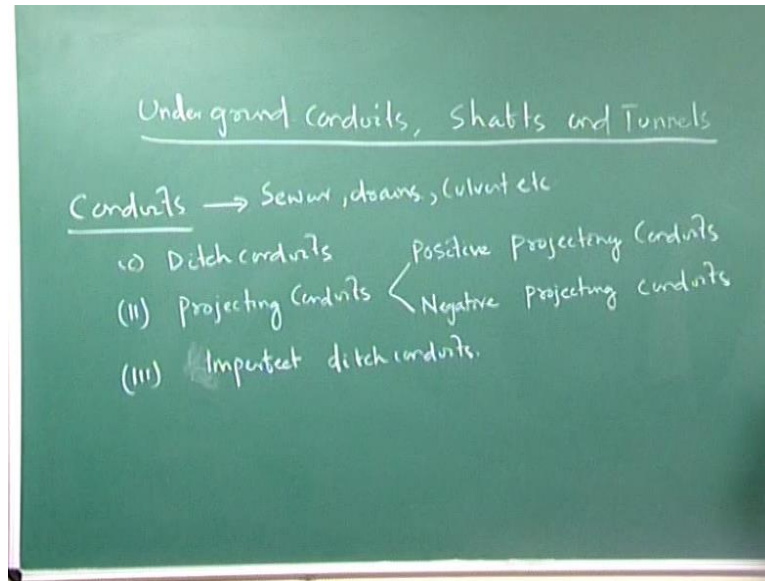 Underground Conduits, Shafts and Tunnels
Conduits → Sewer, drains, Culvert etc
(i) Ditch conduits
(II) Projecting Conduits < Positive Projecting Conduits
Negative projecting conduits
(III) Imperfect ditch conduits.